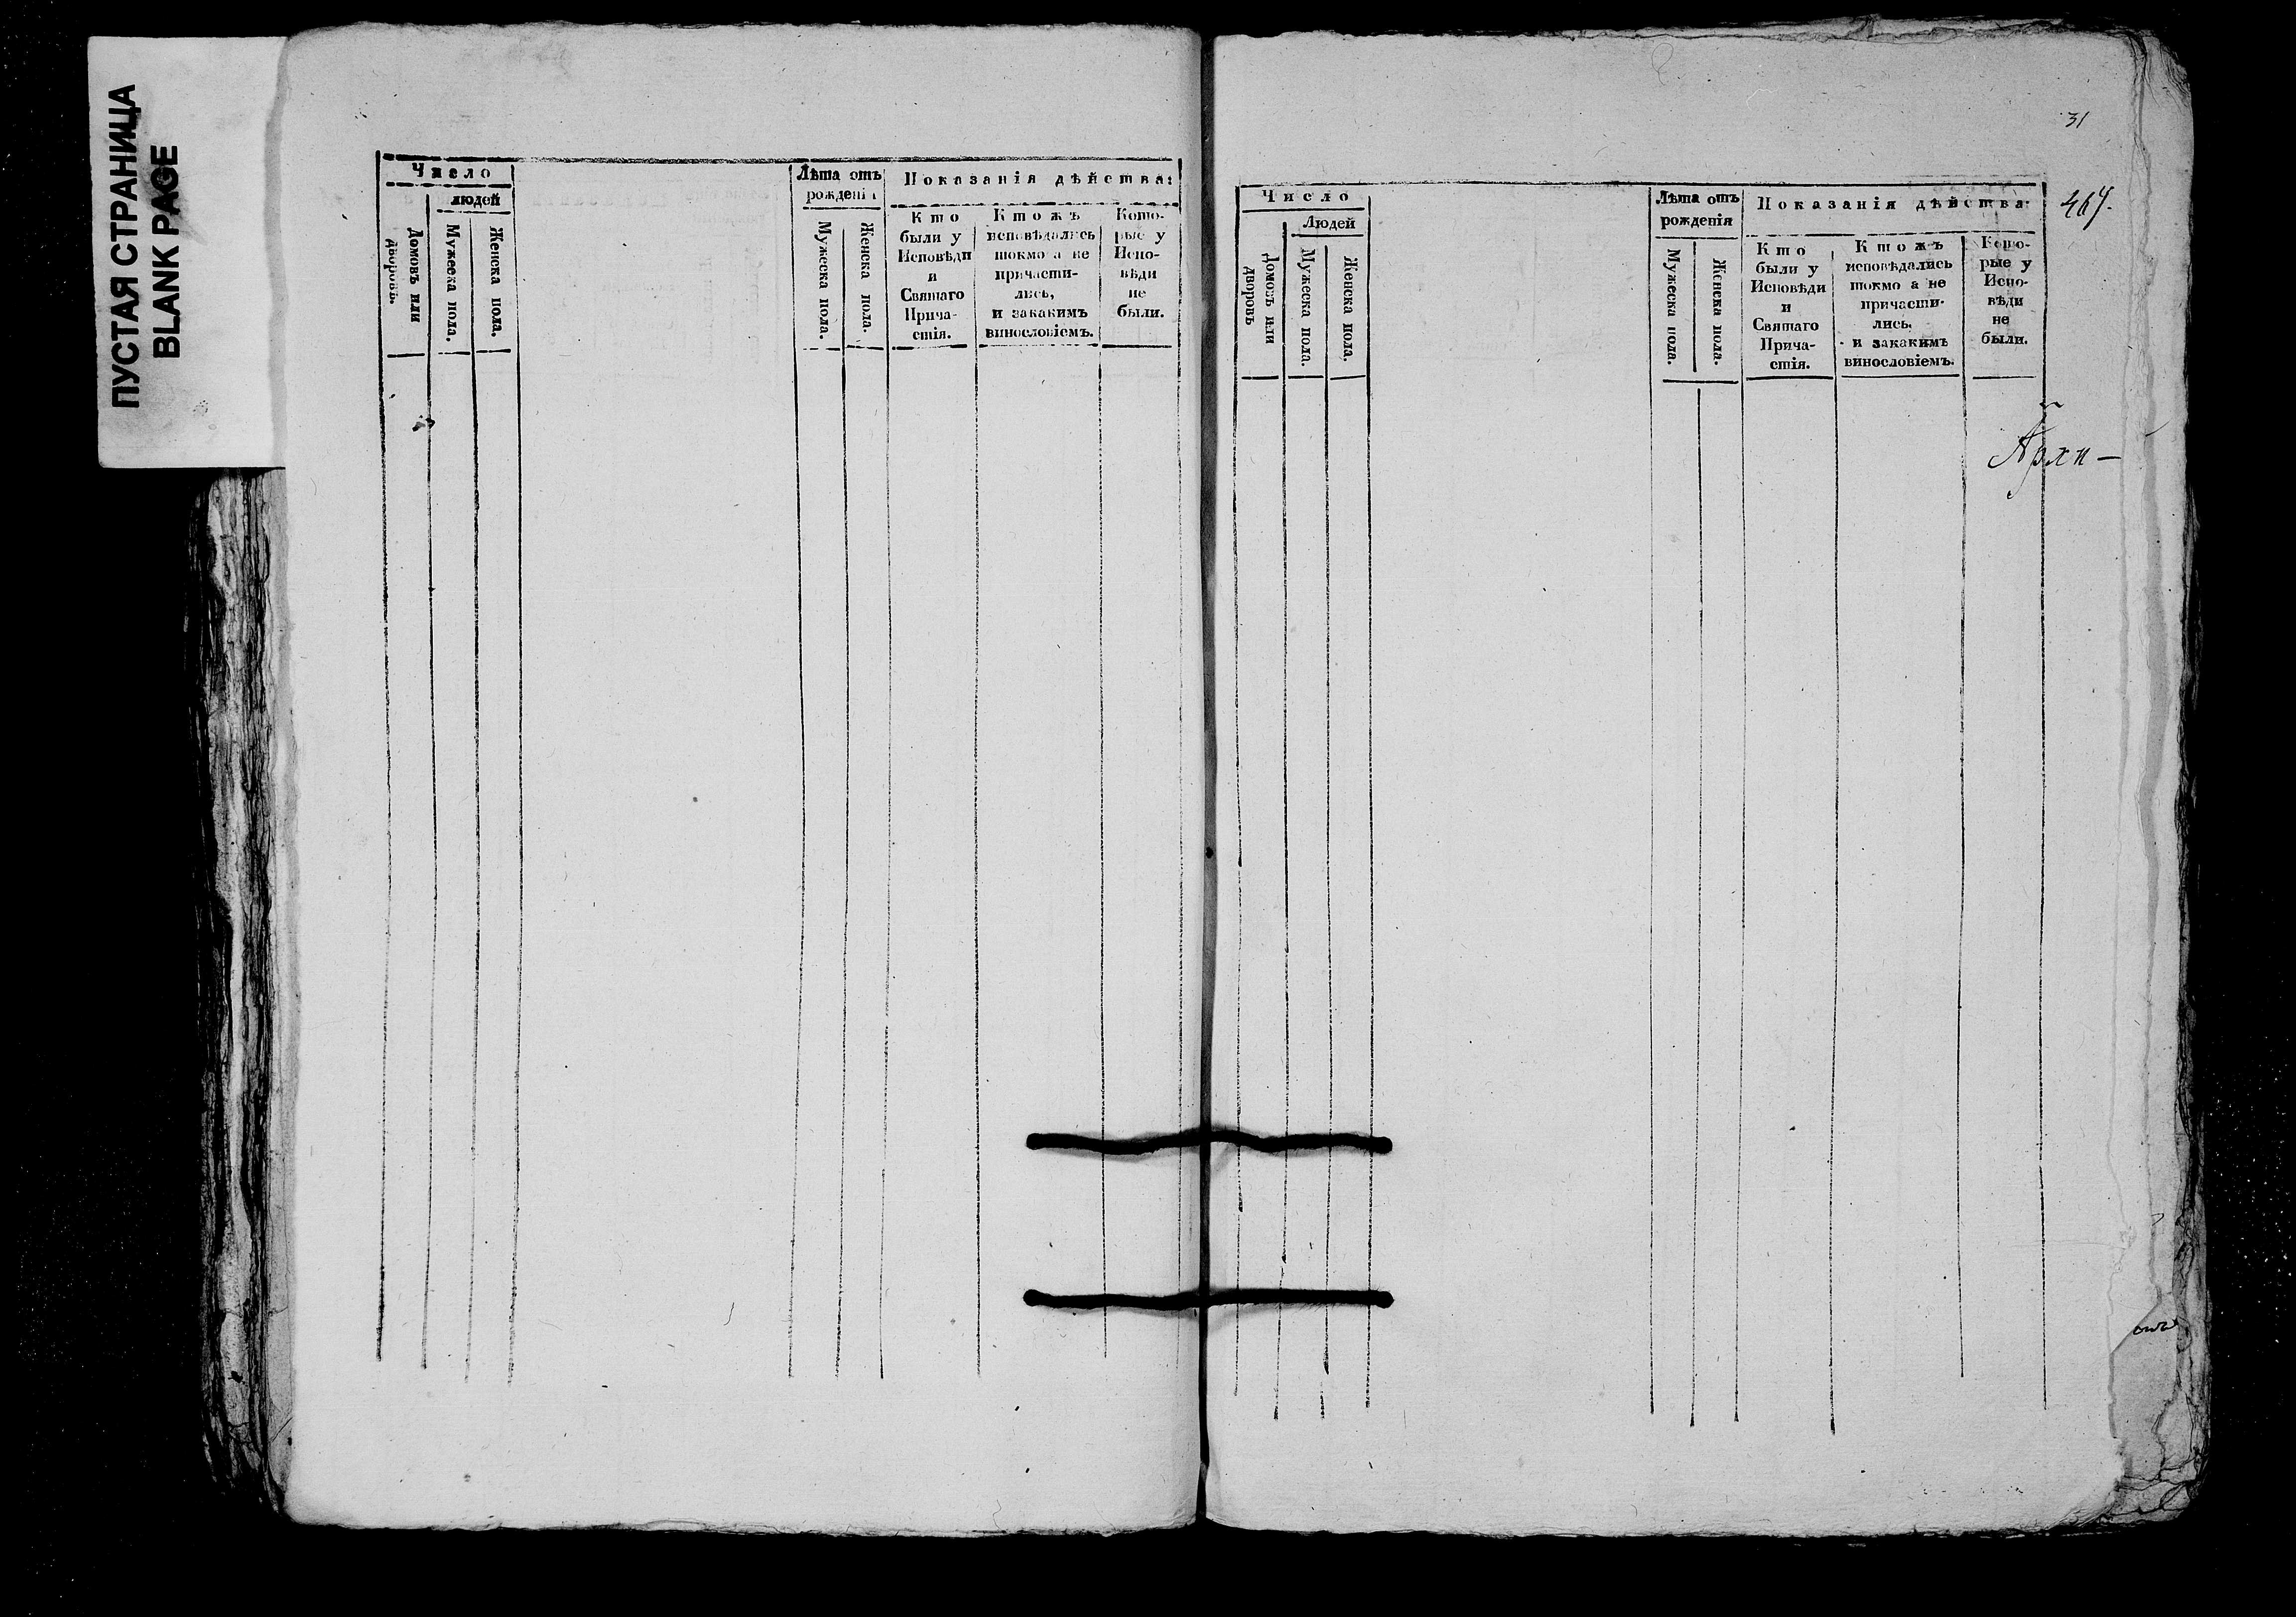 ПУСТАЯ СТРАНИЦА
BLANK PAGE
Число
людей
Домовъ или
дворовъ.
Мужеска пола.
Женска пола.
Лѣта отъ
рожденія
Мужеска пола.
Женска пола.
Показанія дѣйства:
Кто
были у
Исповѣди
и
Святаго
Прича-
стія.
Ктожъ
исповѣдались
токмо а не
причасти-
лись,
и закакимъ
винословіемъ.
Кото-
рые у
Испо-
вѣди
не
были.
31
Число
Людей
Домовъ или
дворовъ
Мужеска пола.
Женска пола.
Лѣта отъ
рожденія
Мужеска пола.
Женска пола.
Показанія дѣйства:
Кто
были у
Исповѣди
и
Святаго
Прича-
стія.
Ктожъ
исповѣдались
токмо а не
причасти-
лись,
и закакимъ
винословіемъ.
Кото-
рые у
Испо-
вѣди
не
были.
Архи-